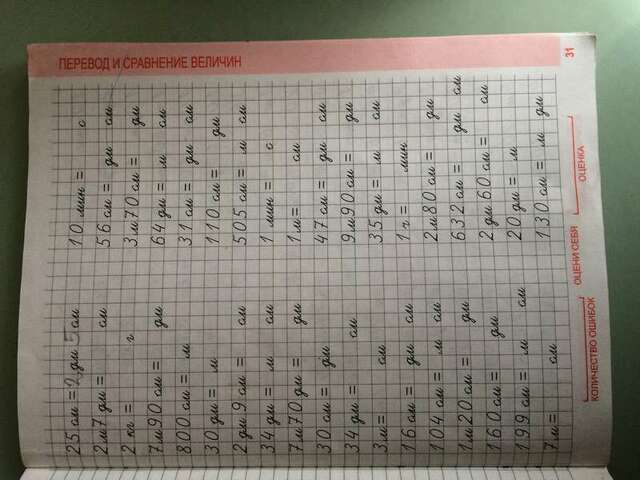 25 см = 2 дм 5 см
2 м 7 дм = см
2 кг = г
7 м 90 см = дм
800 см = м
30 дм = м
2 дм 9 см = см
34 дм = м см
7 м 70 дм = дм
30 см = дм
34 дм = см
3 м = см
16 см = дм см
104 см = м см
1 м 20 см = дм
160 см = дм
199 см = м см
7 м = см
10 мин = с
56 см = дм см
3 м 70 см = дм
64 дм = м см
31 см = дм см
110 см = дм
505 см = м см
1 мин = с
1 м = см
47 см = дм см
9 м 90 см = дм
35 дм = м см
1 ч = мин
2 м 80 см = дм
632 см = дм см
2 дм 60 см = см
20 дм = м
130 см = м дм
ПЕРЕВОД И СРАВНЕНИЕ ВЕЛИЧИН
ОЦЕНИ СЕБЯ
КОЛИЧЕСТВО ОШИБОК
ОЦЕНКА
31